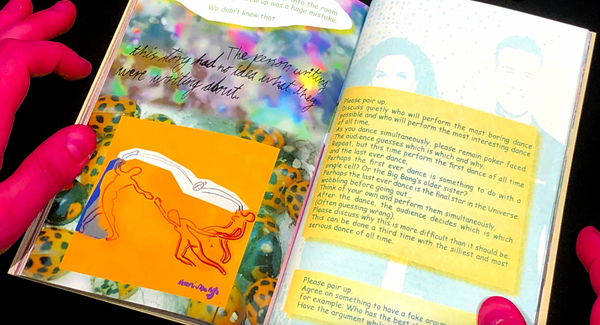 into the room
up was a huge mistake.
We didn't know that
The person writing
this story had no idea what they
were writing about.
Please pair up.
Discuss quietly who will perform the most boring dance
possible and who will perform the most interesting dance
of all time.
As you dance simultaneously, please remain poker faced.
The audience guesses which is which and why.
Repeat, but this time perform the first dance of all time
and the last ever dance.
Perhaps the first ever dance is something to do with a
single cell? Or the Big Bang's older sister?
Perhaps the last ever dance is the final star in the Universe
wobbling before going out.
Think of your own and perform them simultaneously.
After the dance, the audience decides which is which
(Often guessing wrong).
Please discuss why this is more difficult than it should be.
This can be done a third time with the silliest and most
serious dance of all time.
Please pair up.
Agree on something to have a fake
for example: Who has the best
Have the argument